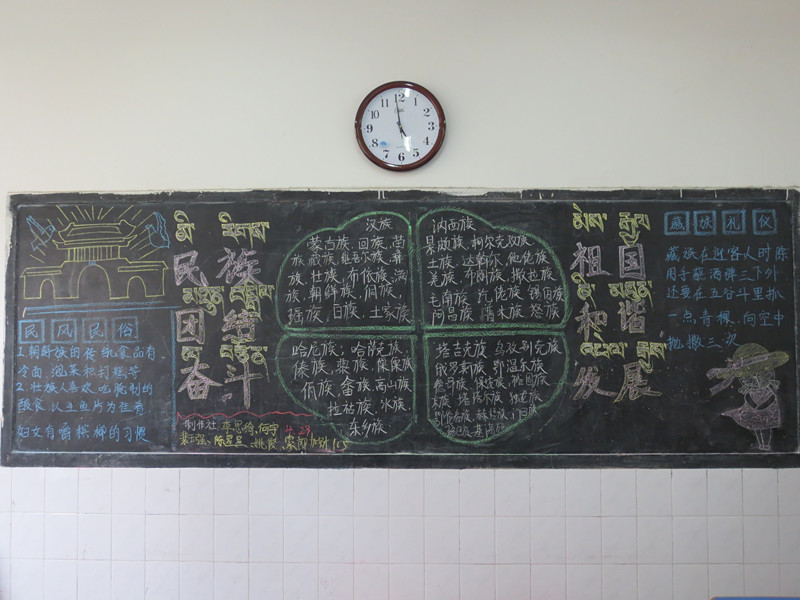 12 1 2 3 4 5 6 7 8 9 10 11
民族
团结
奋斗
祖国
和谐
发展
民风民俗
1.朝鲜族的传统食品有
冷面、泡菜和打糕等
2.壮族人喜欢吃腌制的
酸食，以生鱼片为佳肴
妇女有嚼槟榔的习惯
汉族
蒙古族、回族、苗
族、藏族、维吾尔族、彝
族、壮族、布依族、满
族、朝鲜族、侗族、
瑶族、白族、土家族
纳西族
景颇族、柯尔克孜族
土族、达斡尔、仫佬族
羌族、布朗族、撒拉族
毛南族、仡佬族、锡伯族
阿昌族、普米族、怒族
哈尼族、哈萨克族、
傣族、黎族、傈僳族
佤族、畲族、高山族
拉祜族、水族、
东乡族
塔吉克族、乌孜别克族
俄罗斯族、鄂温克族
保安族、裕固族
京族、塔塔尔族、独龙族
赫哲族、门巴族
制作社
4.29
藏族礼仪
藏族在迎客人时除
用手蘸酒弹三下外
还要在五谷斗里抓
一点青稞、向空中
抛撒三次